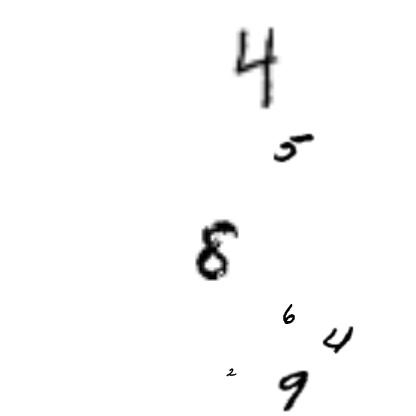 4
5
8
6
4
2
9